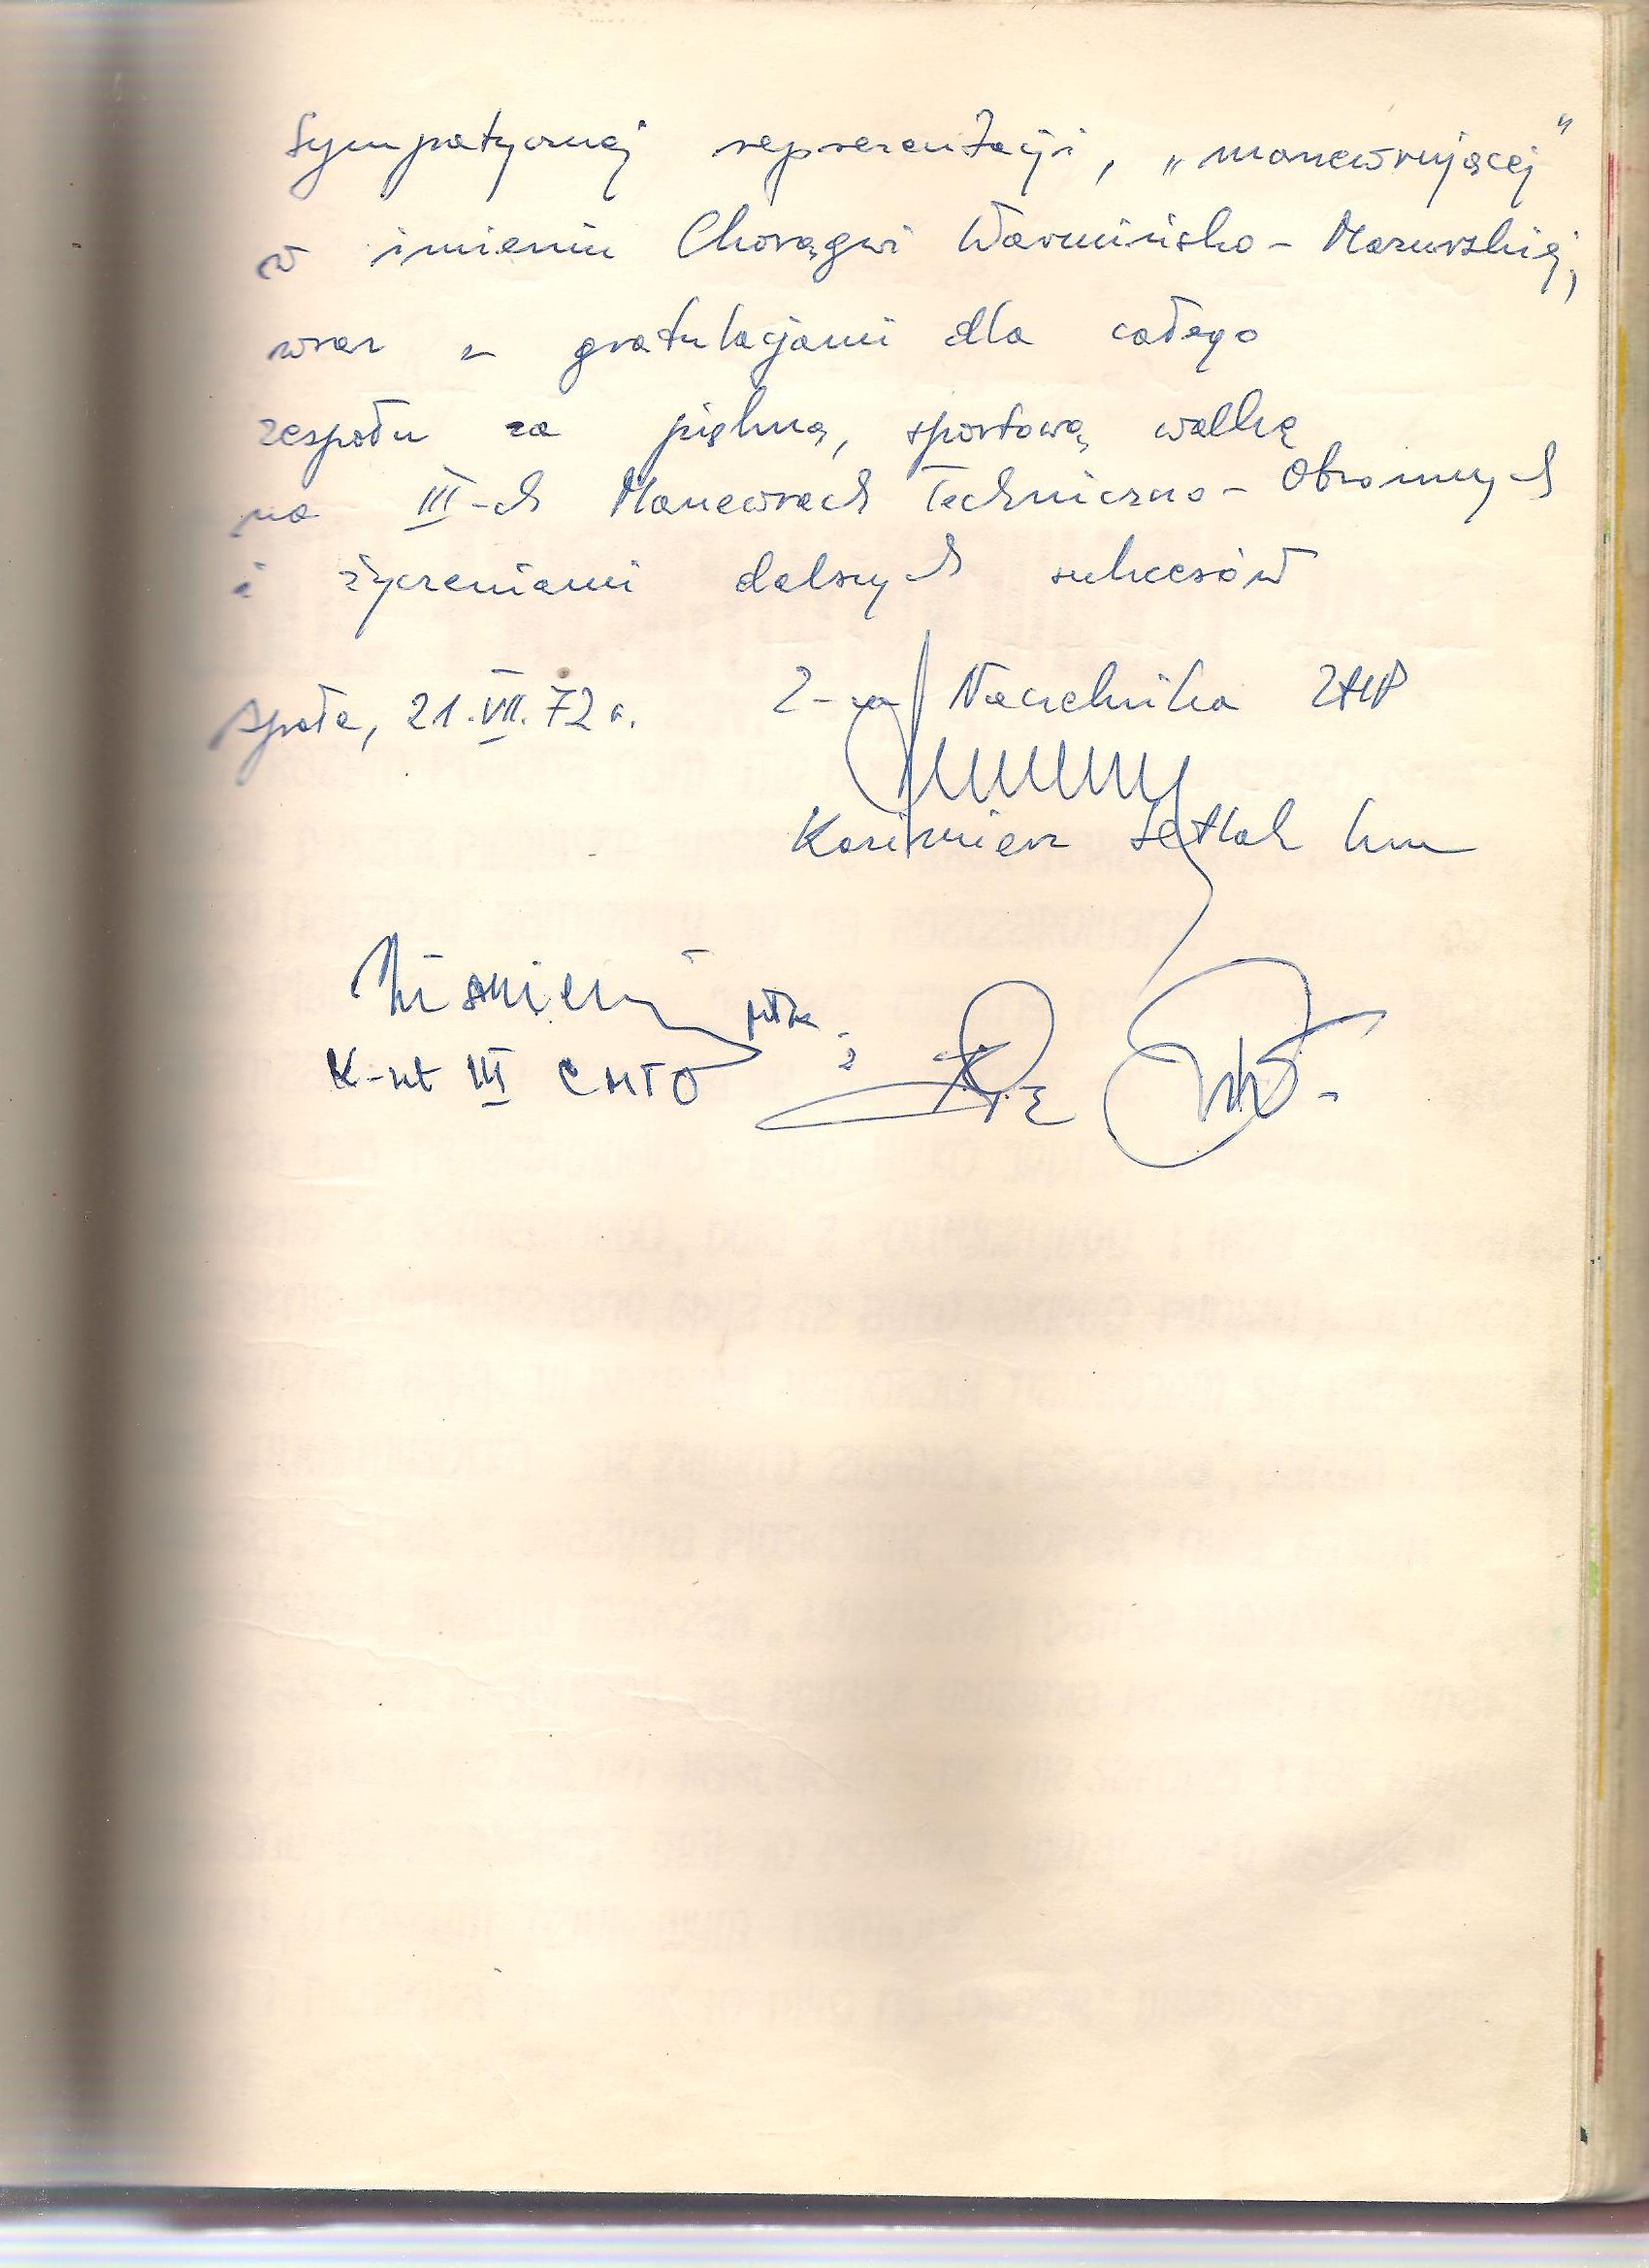 Sympatycznej reprezentacji, „manewrującej”
w imieniu Chorągwi Warmińsko-Mazurskiej,
wraz z gratulacjami dla całego
zespołu za piękną, sportową walkę
na III-ch Manewrach Techniczno-Obronnych
i życzeniami dalszych sukcesów
Spała, 21.VII.72 r.
Z-ca Naczelnika ZHP
Kazimierz hm
K-nt III CMTO